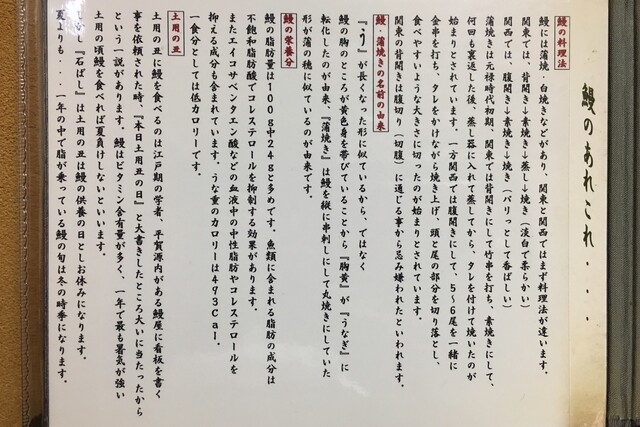 鰻のあれこれ・・・
鰻の料理法
鰻には蒲焼、白焼きなどがあり、関東と関西ではまず料理法が違います。
関東では、背開き↓素焼き↓蒸し↓焼き（淡白で柔らかい）
関西では、腹開き↓素焼き↓焼き（パリっとして香ばしい）
蒲焼きは元禄時代初期、関東では背開きにして竹串を打ち、素焼きにして、
何回も裏返した後、蒸し器に入れて蒸してから、タレを付けて焼いたのが
始まりとされています。一方関西では腹開きにして、5～6尾を一緒に
金串を打ち、タレをかけながら焼き上げ、頭と尾の部分を切り落とし、
食べやすいような大きさに切ったのが始まりとされています。
関東の背開きは腹切り（切腹）に通じる事から忌み嫌われたといわれます。
鰻・蒲焼きの名前の由来
『う』が長くなった形に似ているから、ではなく
鰻の胸のところが黄色身を帯びていることから『胸黄』が『うなぎ』に
転化したのが由来、『蒲焼き』は鰻を縦に串刺しにして丸焼きにしていた
形が蒲の穂に似ているのが由来です。
鰻の栄養分
鰻の脂肪量は100g中24gと多めです。魚類に含まれる脂肪の成分は
不飽和脂肪酸でコレステロールを抑制する効果があります。
またエイコサペンタエン酸などの血液中の中性脂肪やコレステロールを
抑える成分も含まれています。うな重のカロリーは493Cal。
一食分としては低カロリーです。
土用の丑
土用の丑に鰻を食べるのは江戸期の学者、平賀源内がある鰻屋に看板を書く
事を依頼された時、『本日土用丑の日』と大書きしたところ大いに当たったから
という一説があります。鰻はビタミン含有量が多く、一年で最も暑気が強い
土用の頃鰻を食べれば夏負けしないといいます。
しかし『石ばし』は土用の丑は鰻の供養の日としお休みになります。
夏よりも・・・一年の中で脂が乗っている鰻の旬は冬の時季になります。